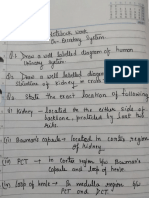 Network work
On Excretory System
Q.1. Draw a well labelled diagram of human
urinary system.
Q.2. Draw a well labelled diagram
structure of kidney
Q.3. State the exact location of following
(i) Kidney - located to the either side of
backbone, protected by last two
ribs.
(ii) Bowman's capsule → located in cortex region
of kidney.
(iii) PCT → In cortex region b/w Bowman's
capsule and loop of henle.
(iv) loop of henle → In medulla region b/w
PCT and DCT.